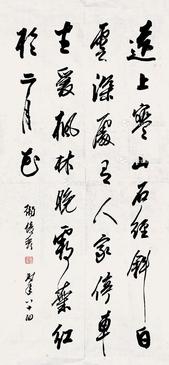 遠上寒山石徑斜白
雲深處有人家停車
坐愛楓林晚霜葉紅
於二月花
衛俊秀 時年八十四